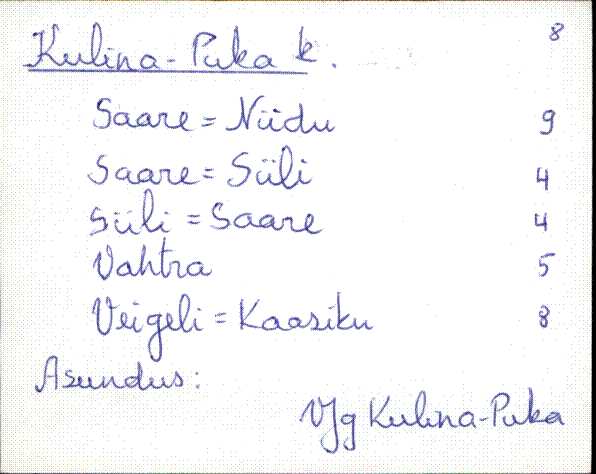 Kulina-Puka k. 8
Saare = Niidu 9
Saare = Siili 4
Siili = Saare 4
Vahtra 5
Veigeli = Kaasiku 8
Asundus:
Vjg Kulina-Puka